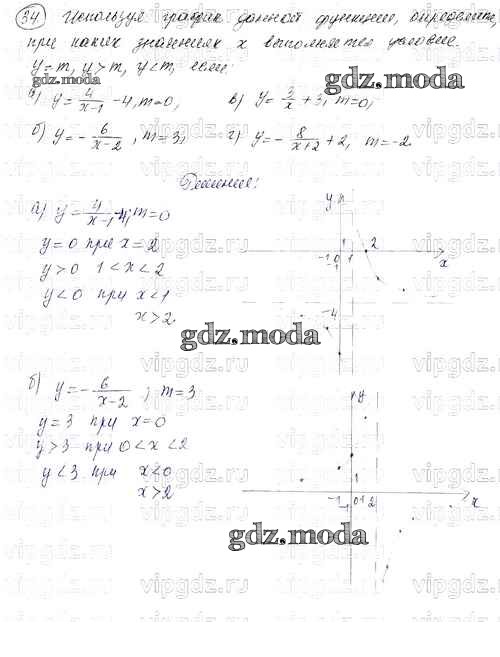 34 Используя график данной функции, определите,
при каких значениях x выполняется условие
y=m, y>m, y<m, если:
а) y=4/(x-1) -4, m=0, в) y=3/x+3, m=0,
б) y=-6/(x-2), m=3, г) y=-8/(x+2)+2, m=-2.
Решение:
а) y=4/(x-1)-4, m=0
y=0 при x=2
y>0 1<x<2
y<0 при x<1
x>2
б) y=-6/(x-2), m=3
y=3 при x=0
y>3 при 0<x<2
y<3 при x<0
x>2
y
-1 0 1 2
1
-1
x
-4
y
-1 0 1 2
-1
x
gdz.moda
gdz.moda
gdz.moda
gdz.moda
vipgdz.ru